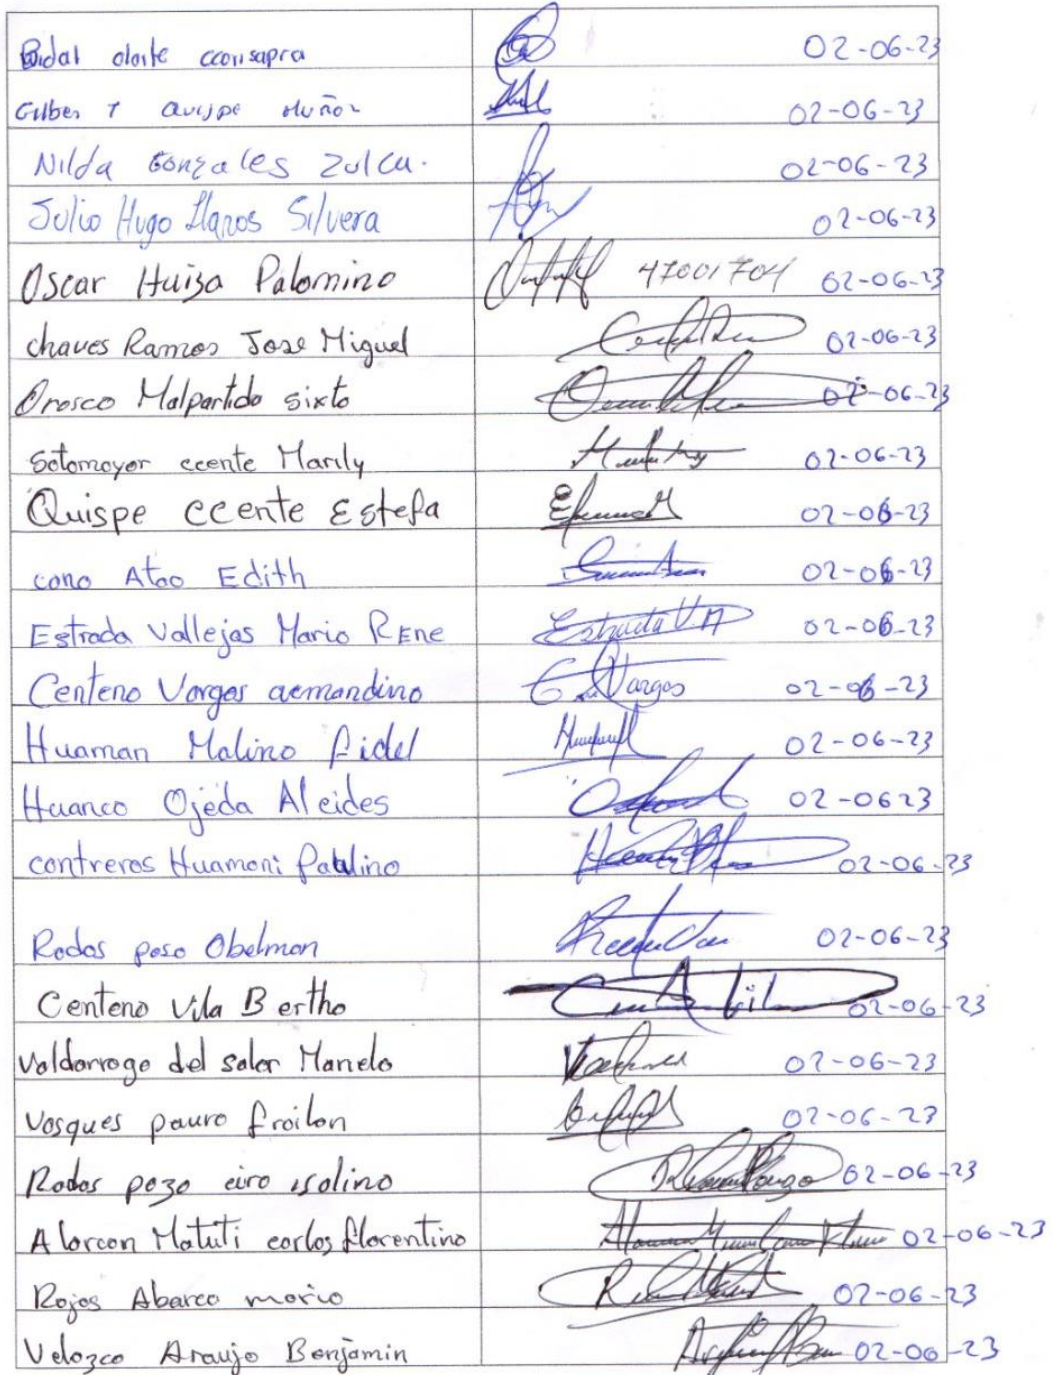 Bidal olarte cconsapra 02-06-23
Gilber T Quispe Muñoz 02-06-23
Nilda Gonzales Zulca. 02-06-23
Julio Hugo Llanos Silvera 02-06-23
Oscar Huiza Palomino 47001704 02-06-23
chaves Ramos Jose Miguel 02-06-23
Orosco Malpartida sixto 02-06-23
Sotomayor ccente Marily 02-06-23
Quispe ccente Estefa 02-06-23
cano Atao Edith 02-06-23
Estrada Vallejas Mario REne 02-06-23
Centeno Vargas armandino 02-06-23
Huaman Malino fidel 02-06-23
Huanco Ojeda Alcides 02-0623
contreras Huamani Paulino 02-06-23
Rodas poso Obelman 02-06-23
Centeno Vila Bertha 02-06-23
Valdarrago del salar Manelo 02-06-23
Vasques pauro froilan 02-06-23
Rodas pozo ciro isolino 02-06-23
Alarcon Matuti carlos florentino 02-06-23
Rojas Abarca mario 02-06-23
Velozco Araujo Benjamin 02-06-23